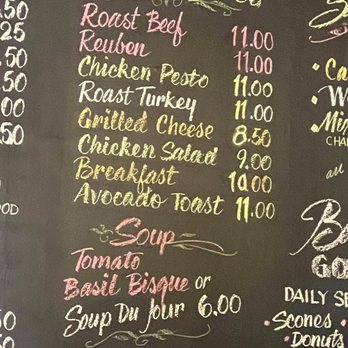 .50
.25
.50
00
50
OOD
Roast Beef 11.00
Reuben 11.00
Chicken Pesto 11.00
Roast Turkey 11.00
Grilled Cheese 8.50
Chicken Salad 9.00
Breakfast 10.00
Avocado Toast 11.00
Soup
Tomato
Basil Bisque or
Soup Du Jour 6.00
DAILY SE
• Scones •
• Donuts